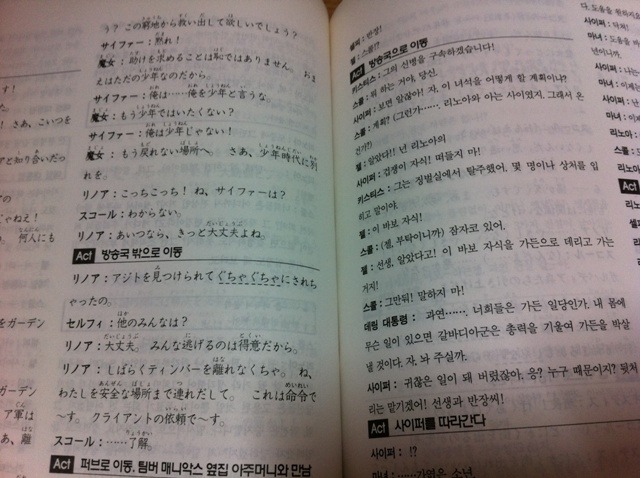 う？この窮地から救い出して欲しいでしょう？
サイファー：黙れ！
魔女：助けを求めることは恥ではありません。おま
えはただの少年なのだから。
サイファー：俺は……俺を少年と言うな
魔女：もう少年ではいたくない？
サイファー：俺は少年じゃない！
魔女：もう戻れない場所へ。さあ、少年時代に別
れを。
リノア：こっちこっち！ね、サイファーは？
スコール：わからない。
リノア：あいつなら、きっと大丈夫よね。
Act 방송국 밖으로 이동
リノア：アジトを見つけられてぐちゃぐちゃにされち
ゃったの。
セルフィ：他のみんなは？
リノア：大丈夫。みんな逃げるのは得意だから。
リノア：しばらくティンバーを離れなくちゃ。ね、
わたしを安全な場所まで連れだして。これは命令で
〜す。クライアントの依頼で〜す。
スコール：……了解。
Act 퍼브로 이동, 팀버 매니악스 옆집 아주머니와 만남
셀피 : 반장!
젤 : 스콜!?
Act 방송국으로 이동
키스티스 : 그의 신병을 구속하겠습니다!
스콜 : 뭐 하는 거야, 당신.
사이퍼 : 보면 알잖아! 자, 이 녀석을 어떻게 할 계획이냐?
스콜 : 계획? (그런가…… 리노아와 아는 사이였지. 그래서 온
건가?)
젤 : 알았다!! 넌 리노아의
사이퍼 : 겁쟁이 자식! 떠들지 마!
키스티스 : 그는 징벌실에서 탈주했어. 몇 명이나 상처를 입
히고 말이야.
젤 : 이 바보 자식!
스콜 : (젤, 부탁이니까) 잠자코 있어.
젤 : 선생, 알았다고! 이 바보 자식을 가든으로 데리고 가는
거지!
스콜 : 그만둬! 말하지 마!
데링 대통령 : 과연……, 너희들은 가든 일당인가. 내 몸에
무슨 일이 있으면 갈바디아군은 총력을 기울여 가든을 박살
낼 것이다. 자, 놔 주실까.
사이퍼 : 귀찮은 일이 돼 버렸잖아, 응? 누구 때문이지? 뒷처
리는 맡기겠어! 선생과 반장씨!
Act 사이퍼를 따라간다
사이퍼 : !?
마녀 : ……가엾은 소년.